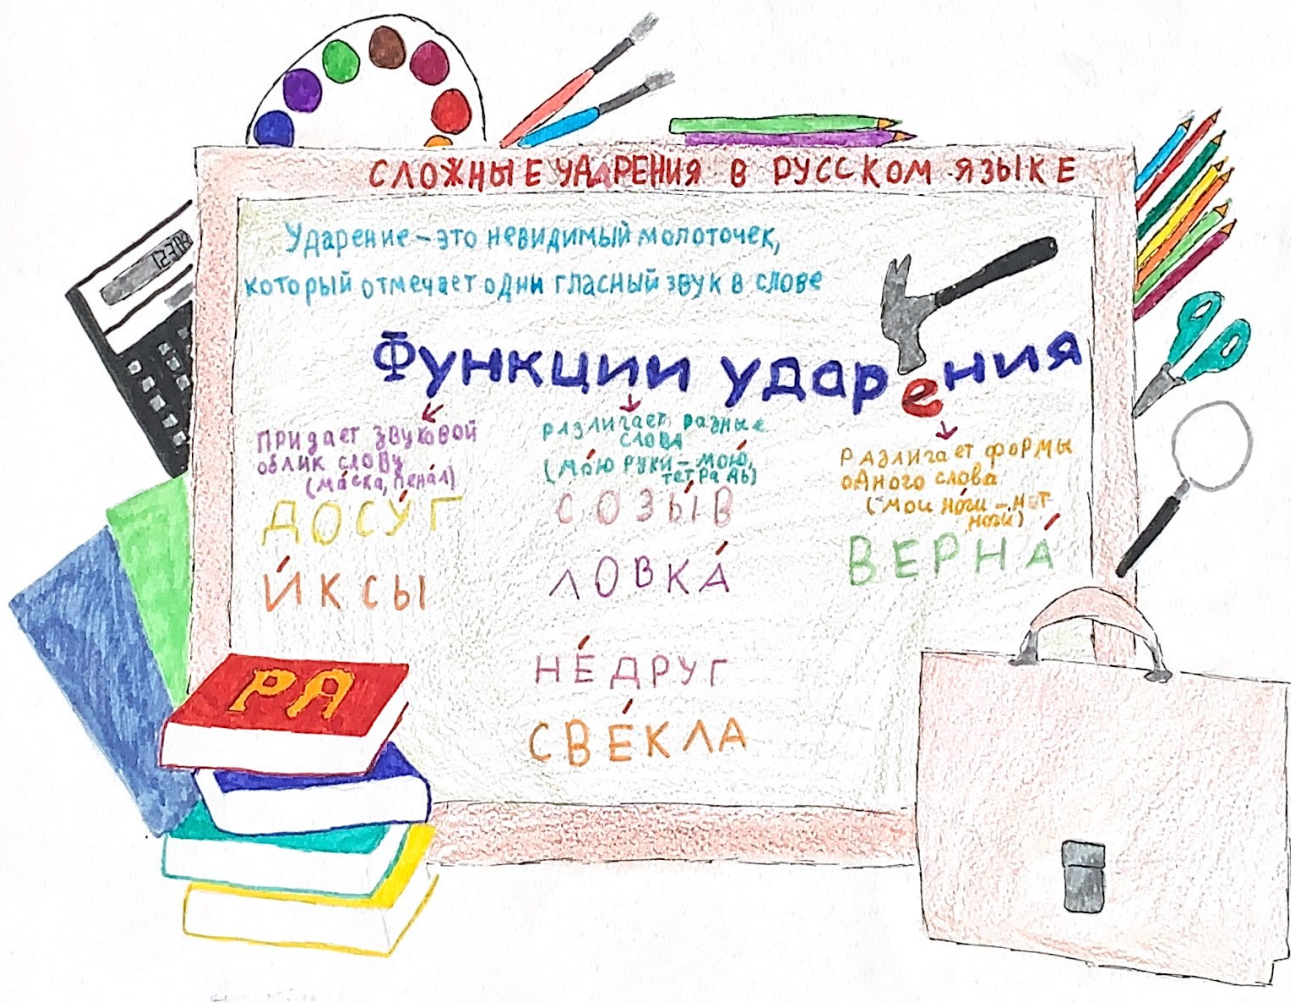 СЛОЖНЫЕ УДАРЕНИЯ В РУССКОМ ЯЗЫКЕ
Ударение – это невидимый молоточек,
который отмечает одни гласный звук в слове
Функции ударения
Придает звуковой
облик слову
(ма́ска, пена́л)
ДОСУ́Г
И́КСЫ
различает разные
слова
(мо́ю руки – мою́
тетрадь)
СОЗЫ́В
ЛОВКА́
НЕ́ДРУГ
СВЁКЛА
Различает формы
одного слова
("мои но́ги – нет
ноги́)
ВЕРНА́
РЯ
12309